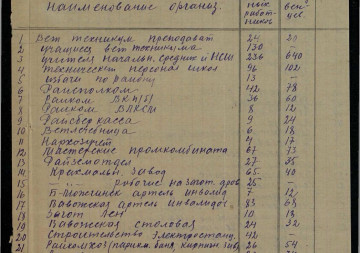 Наименование организ.
1 Вет техникум преподават 24 20
2 учащиеся вет техникума 130 –
3 учителя начальн. средних и НСШ 236 640
4 технический персонал школ 46 102
5 избачи по району 13 –
6 Райисполком 42 78
7 Райком ВКП(б) 36 60
8 Райком ВЛКСМ 8 12
9 Райсберкасса 9 24
10 Ветлечебница 6 18
11 4 9
12 Мастерские промкомбината 67 73
13 Райземотдел 27 35
14 Крахмальн. завод 65 40
15 — „ — рабочие на загот. дров 25
16 артель инвалид 12
17 Вавожская артель инвалидов 83 68
18 Загот Лен 10 18
19 Вавожская столовая 24 32
20 Строительство электростанц. 42 –
21 Райкомхоз (парикм. баня, кирпичн. зав. 26 54